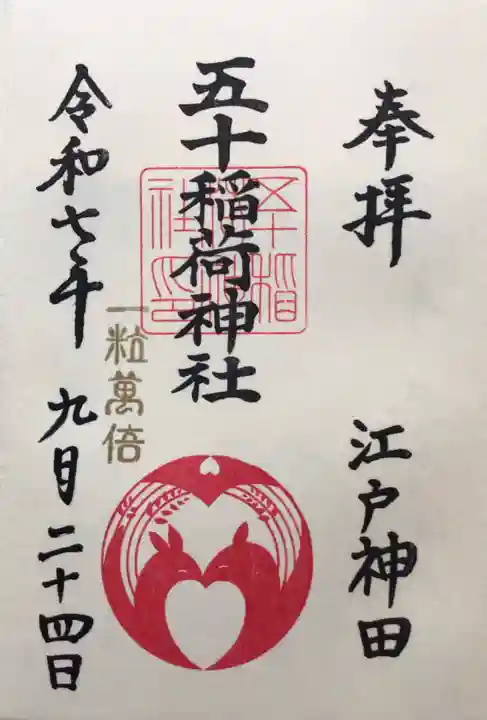 奉拝
江戸神田
五十稲荷神社
一粒萬倍
令和七年 九月二十四日